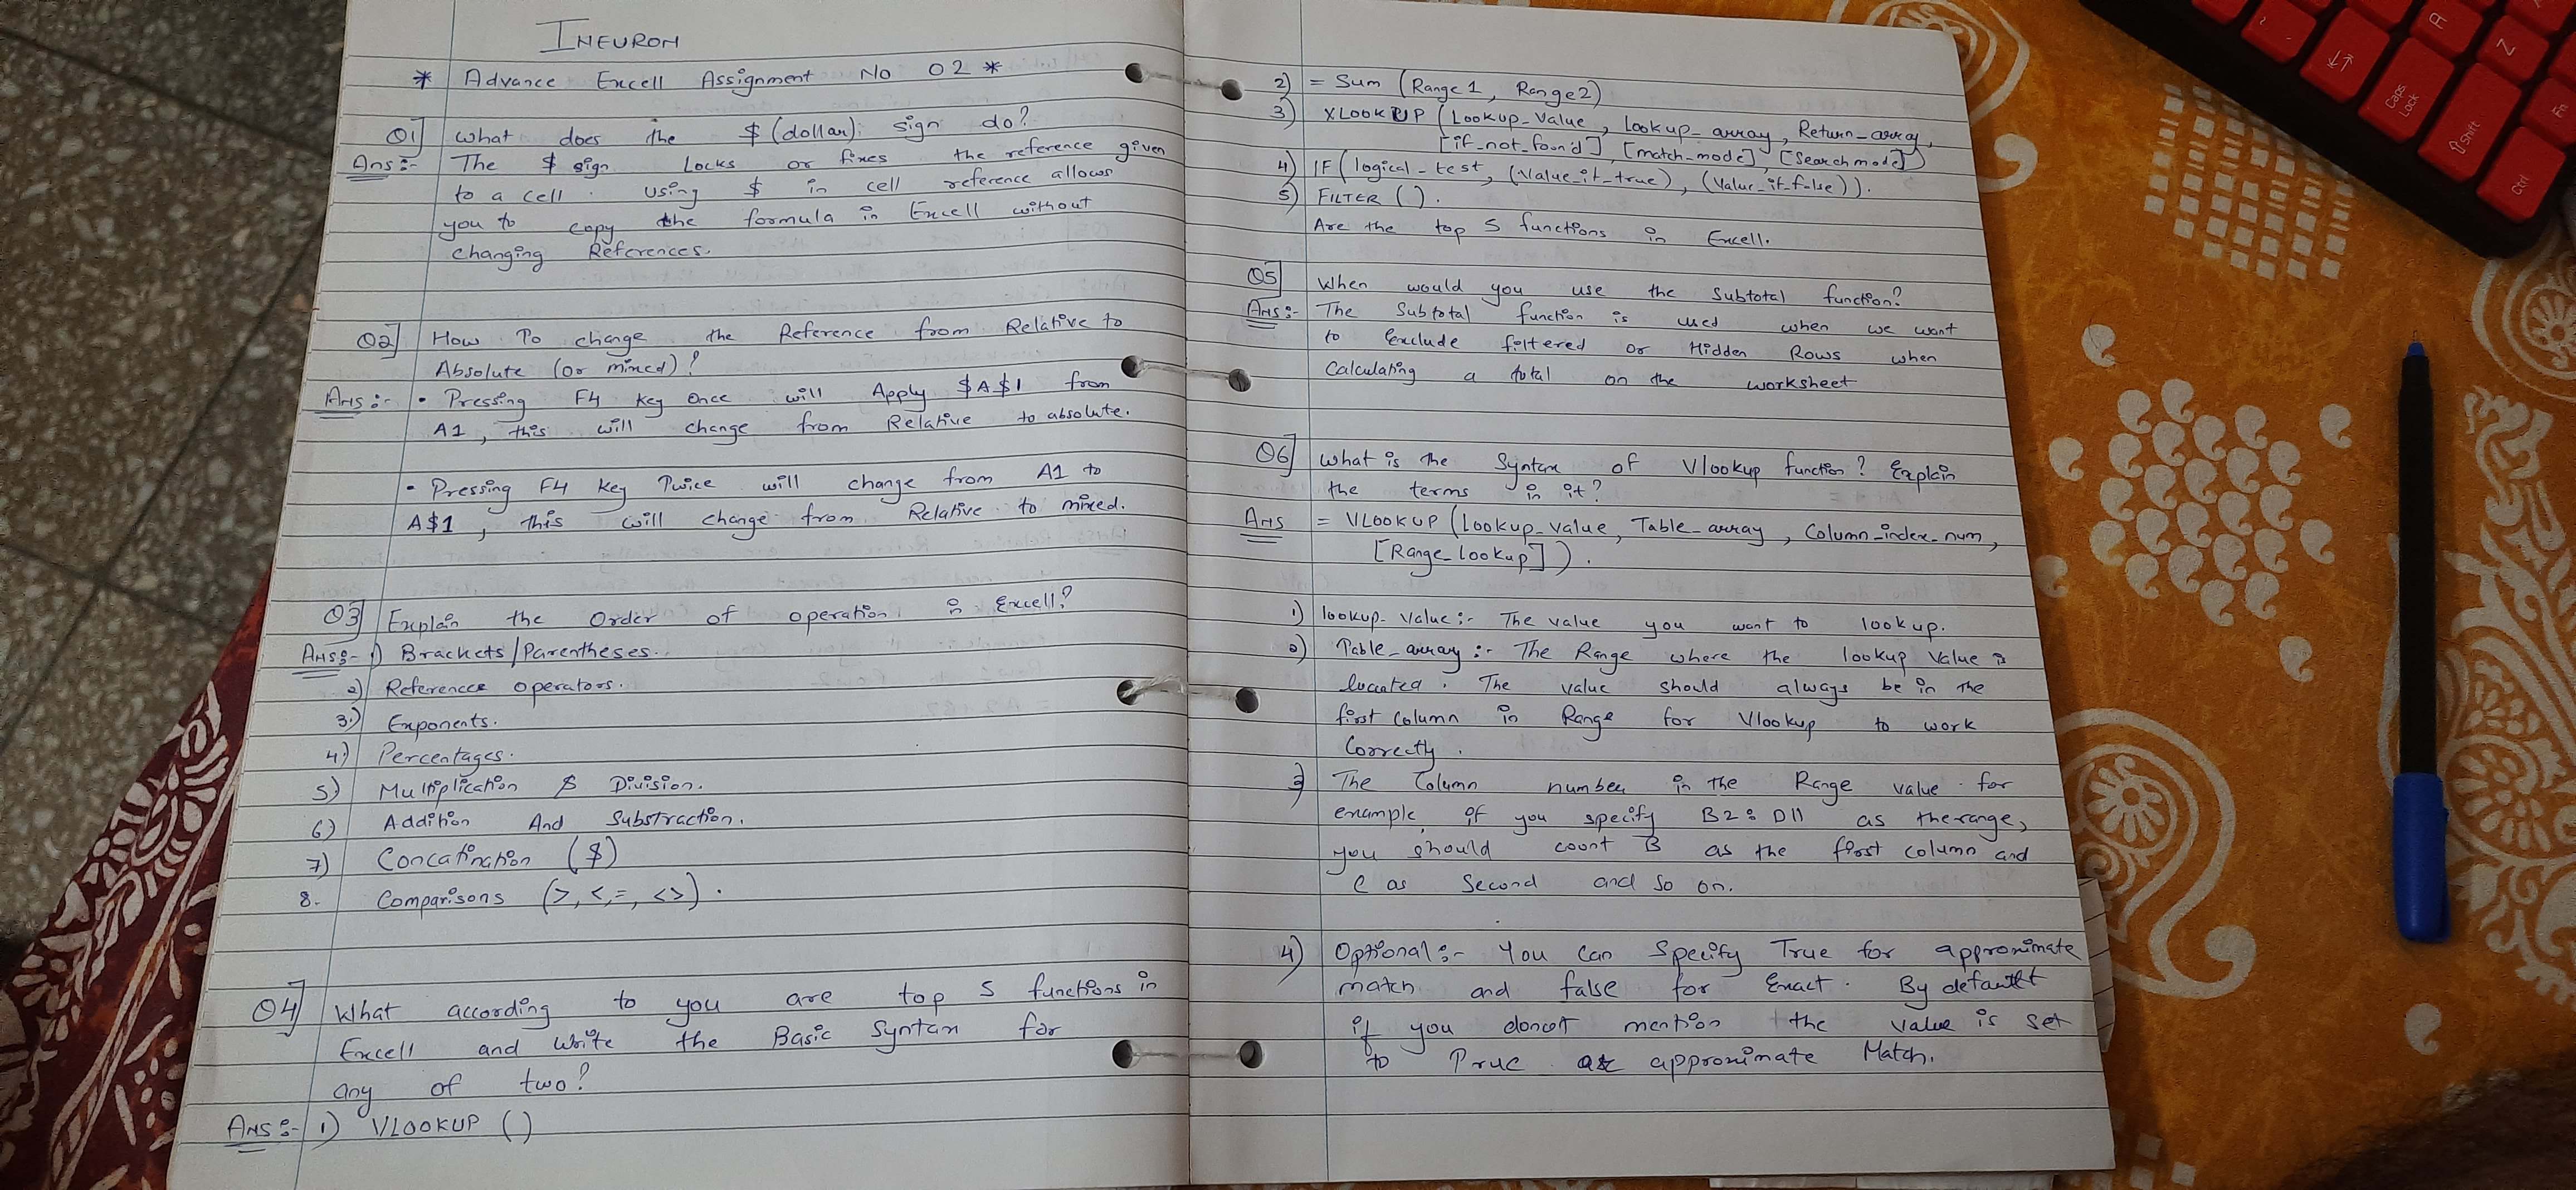 INEURON
* Advance Excell Assignment No 02 *
Q1] What does the $ (dollar) sign do?
Ans:- The $ sign Locks or fixes the reference given
to a cell. Using $ in cell reference allows
you to copy the formula in Excell without
changing References.
Q2] How To change the Reference from Relative to
Absolute (or mixed)?
Ans:- • Pressing F4 key Once will Apply $A$1 from
A1, this will change from Relative to absolute.
• Pressing F4 key Twice will change from A1 to
A$1, this will change from Relative to mixed.
Q3] Explain the Order of operation in Excell?
Ans:- 1) Brackets/Parentheses.
2) References operators.
3.) Exponents.
4.) Percentages.
5) Multiplication & Division.
6) Addition And Substraction.
7) Concatination ($)
8. Comparisons (>, <, =, <>).
Q4] What according to you are top 5 functions in
Excell and write the Basic Syntax for
any of two?
Ans:- 1) VLOOKUP ()
2) = Sum (Range 1, Range 2)
3) XLOOKUP (Lookup_Value, Lookup_array, Return_array,
[if_not_found], [match_mode], [Search mode])
4) IF (logical_test, (Value_if_true), (Value_if_false)).
5) FILTER ().
Are the top 5 functions in Excell.
Q5] When would you use the Subtotal function?
Ans:- The Subtotal function is used when we want
to Exclude filtered or Hidden Rows when
Calculating a total on the worksheet
Q6] What is the Syntax of Vlookup function? Explain
the terms in it?
Ans = VLOOKUP (Lookup_value, Table_array, Column_index_num,
[Range_Lookup]).
1) lookup_Value:- The value you want to lookup.
2) Table_array:- The Range where the lookup Value is
located. The value should always be in the
first column in Range for Vlookup to work
Correctly.
3) The Column number in the Range value. for
example, if you specify B2:D11 as the range,
you should count B as the first column and
C as Second and so on.
4) Optional:- You Can Specify True for approximate
match and false for Exact. By default
if you donot mention the value is set
to True approximate Match.